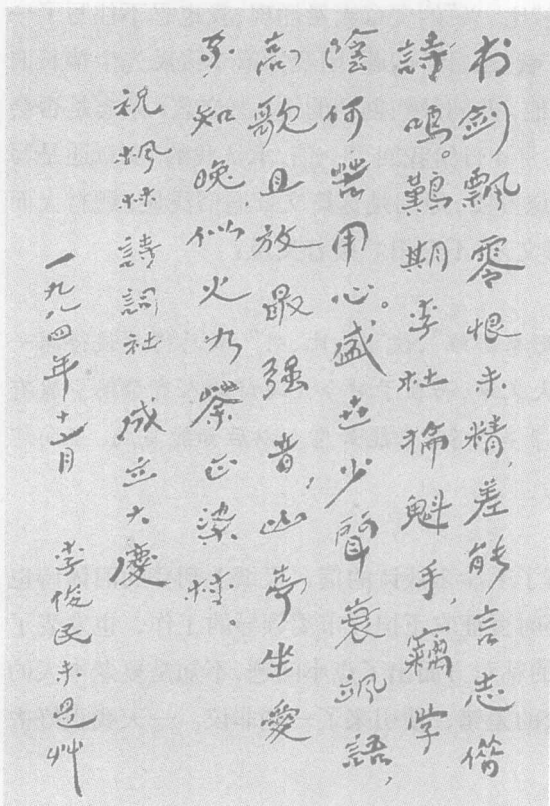 书剑飄零恨未精,差能言志借
詩鳴。難期李杜掄魁手,竊学
陰何苦用心。盛世少聞衰颯語,
高歌且放最强音,山亭坐愛
不知晚,似火丹葉正染林。
祝楓林詩詞社 成立大慶
一九八四年十一月 李俊民未是艸